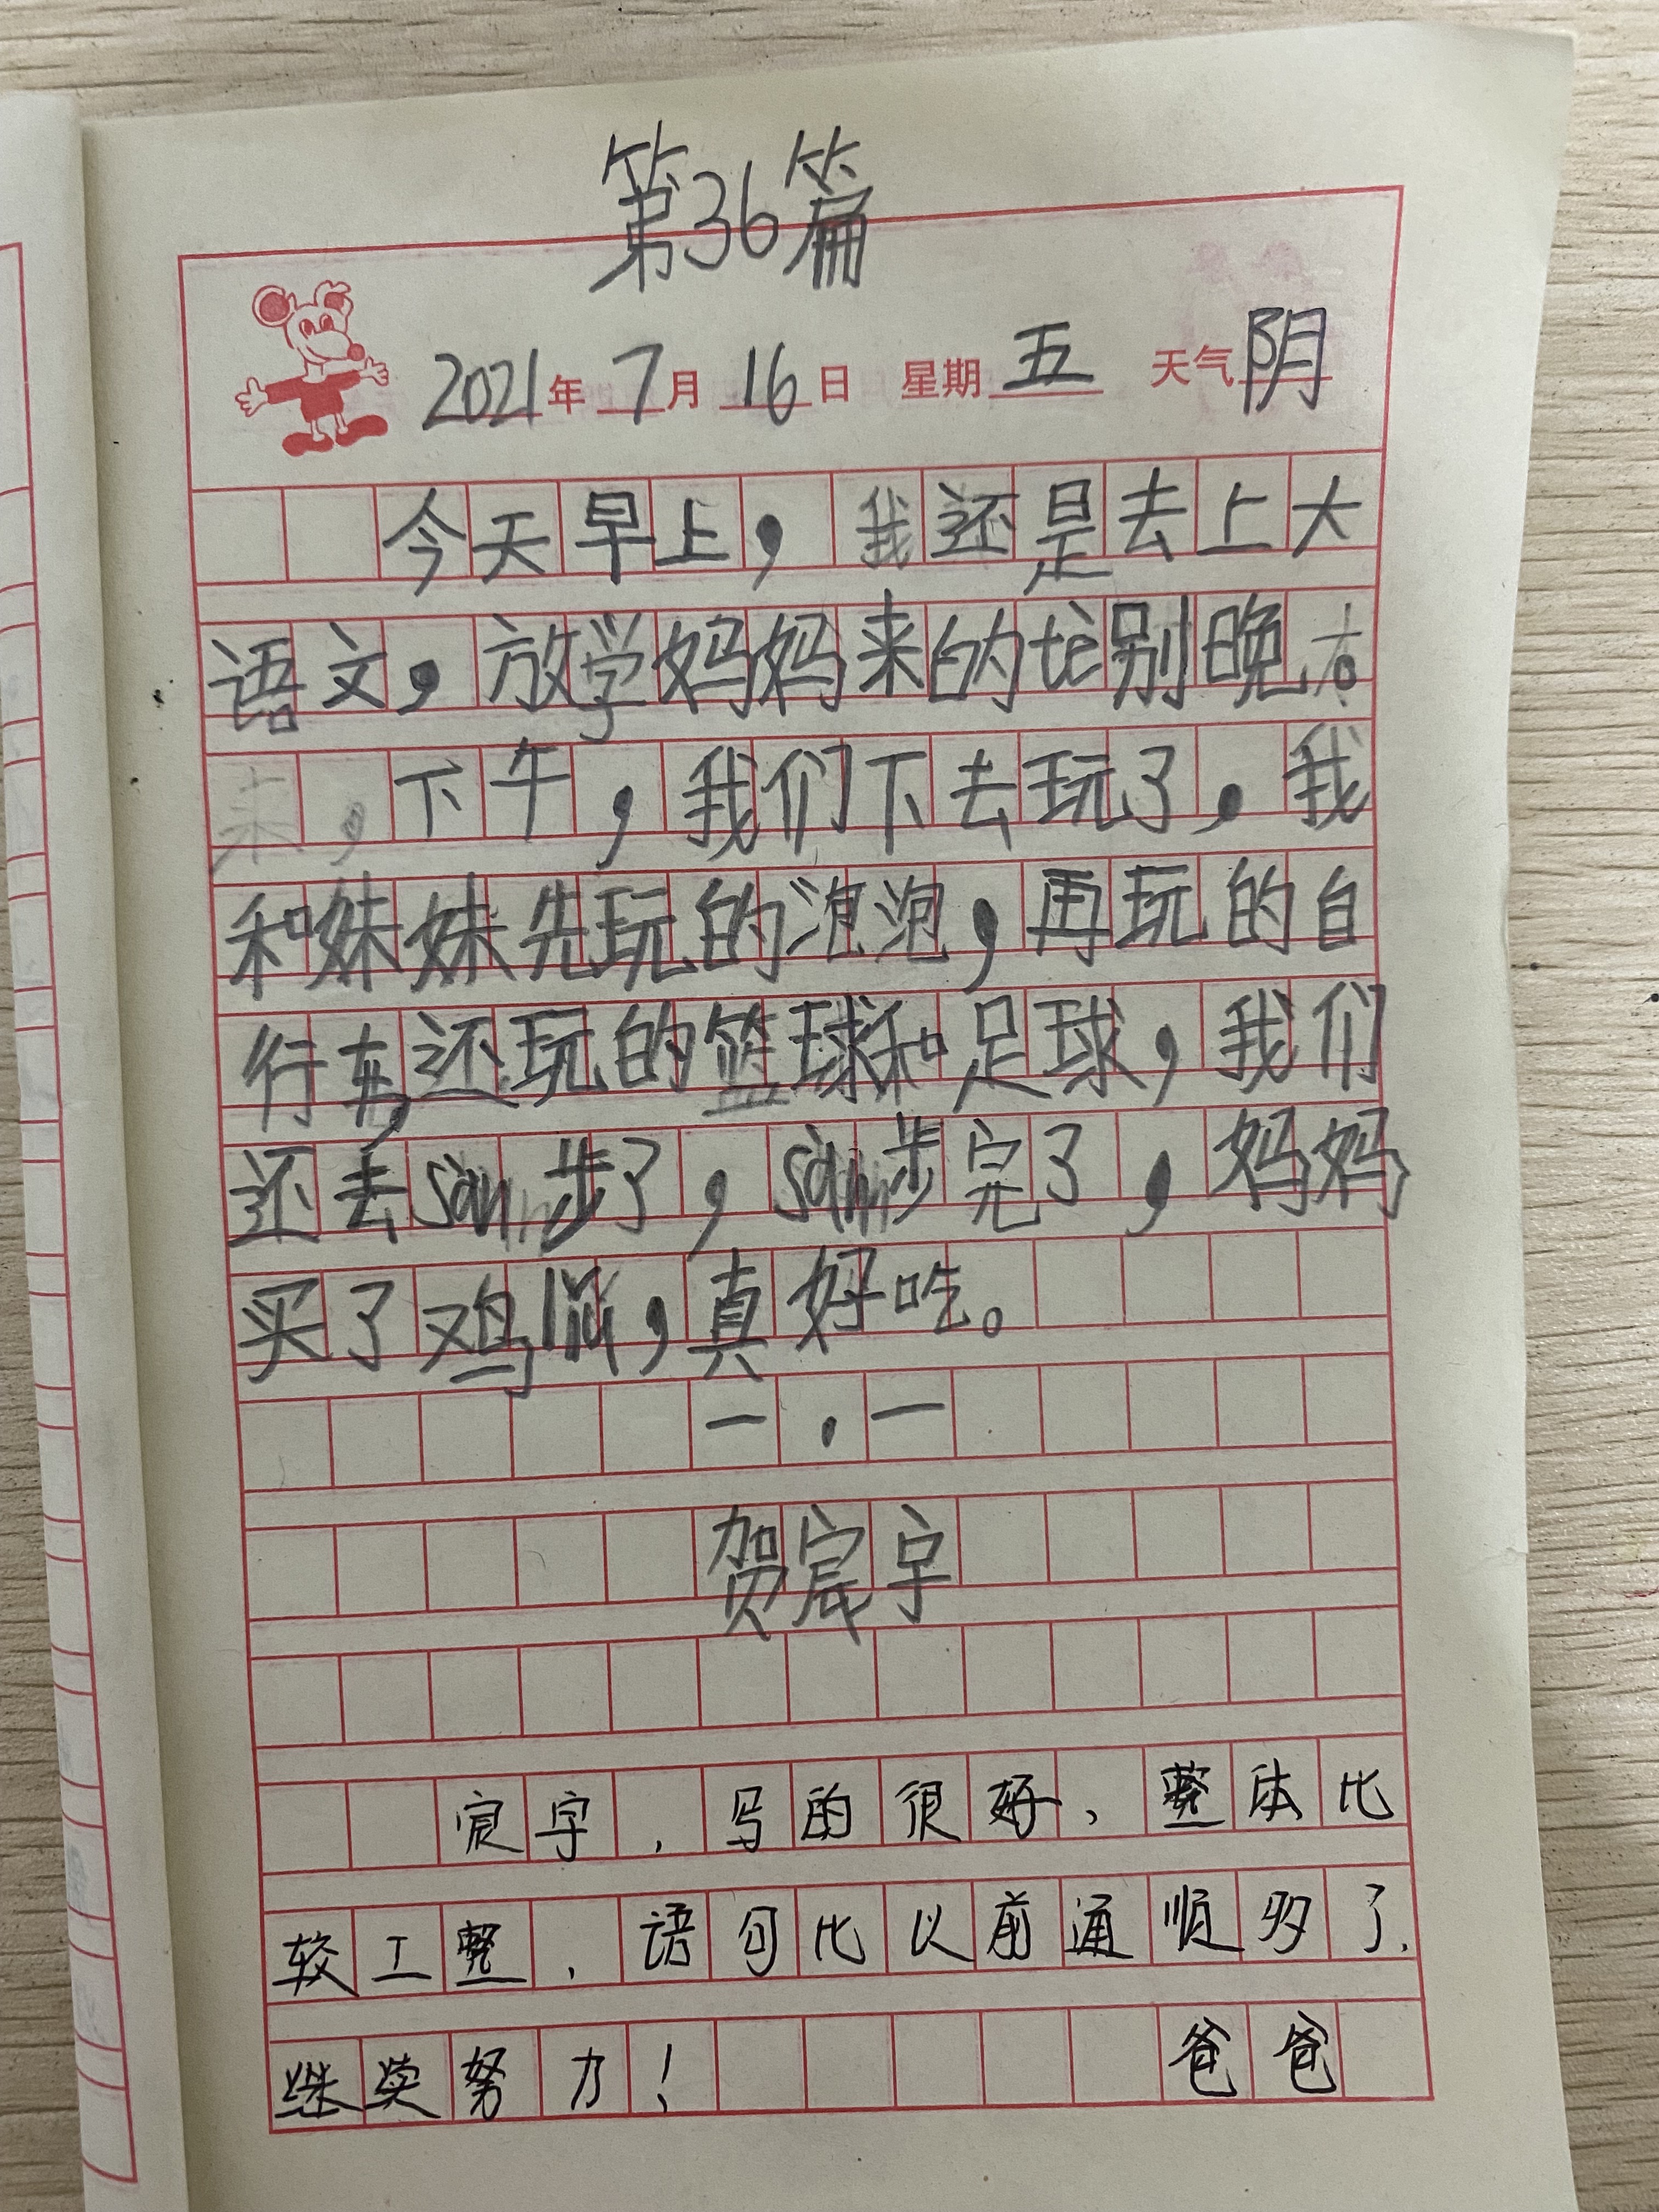 第36篇
2021年7月16日 星期五 天气阴
今天早上，我还是去上大
语文，放学妈妈来的tè别晚。
下午，我们下去玩了，我
和妹妹先玩的泡泡，再玩的自
行车，还玩的篮球和足球，我们
还去sàn步了，sàn步完了，妈妈
买了鸡liǔ，真好吃。
一．一
贺宸宇
宸宇，写的很好，整体比
较工整，语句比以前通顺多了，
继续努力！ 爸爸